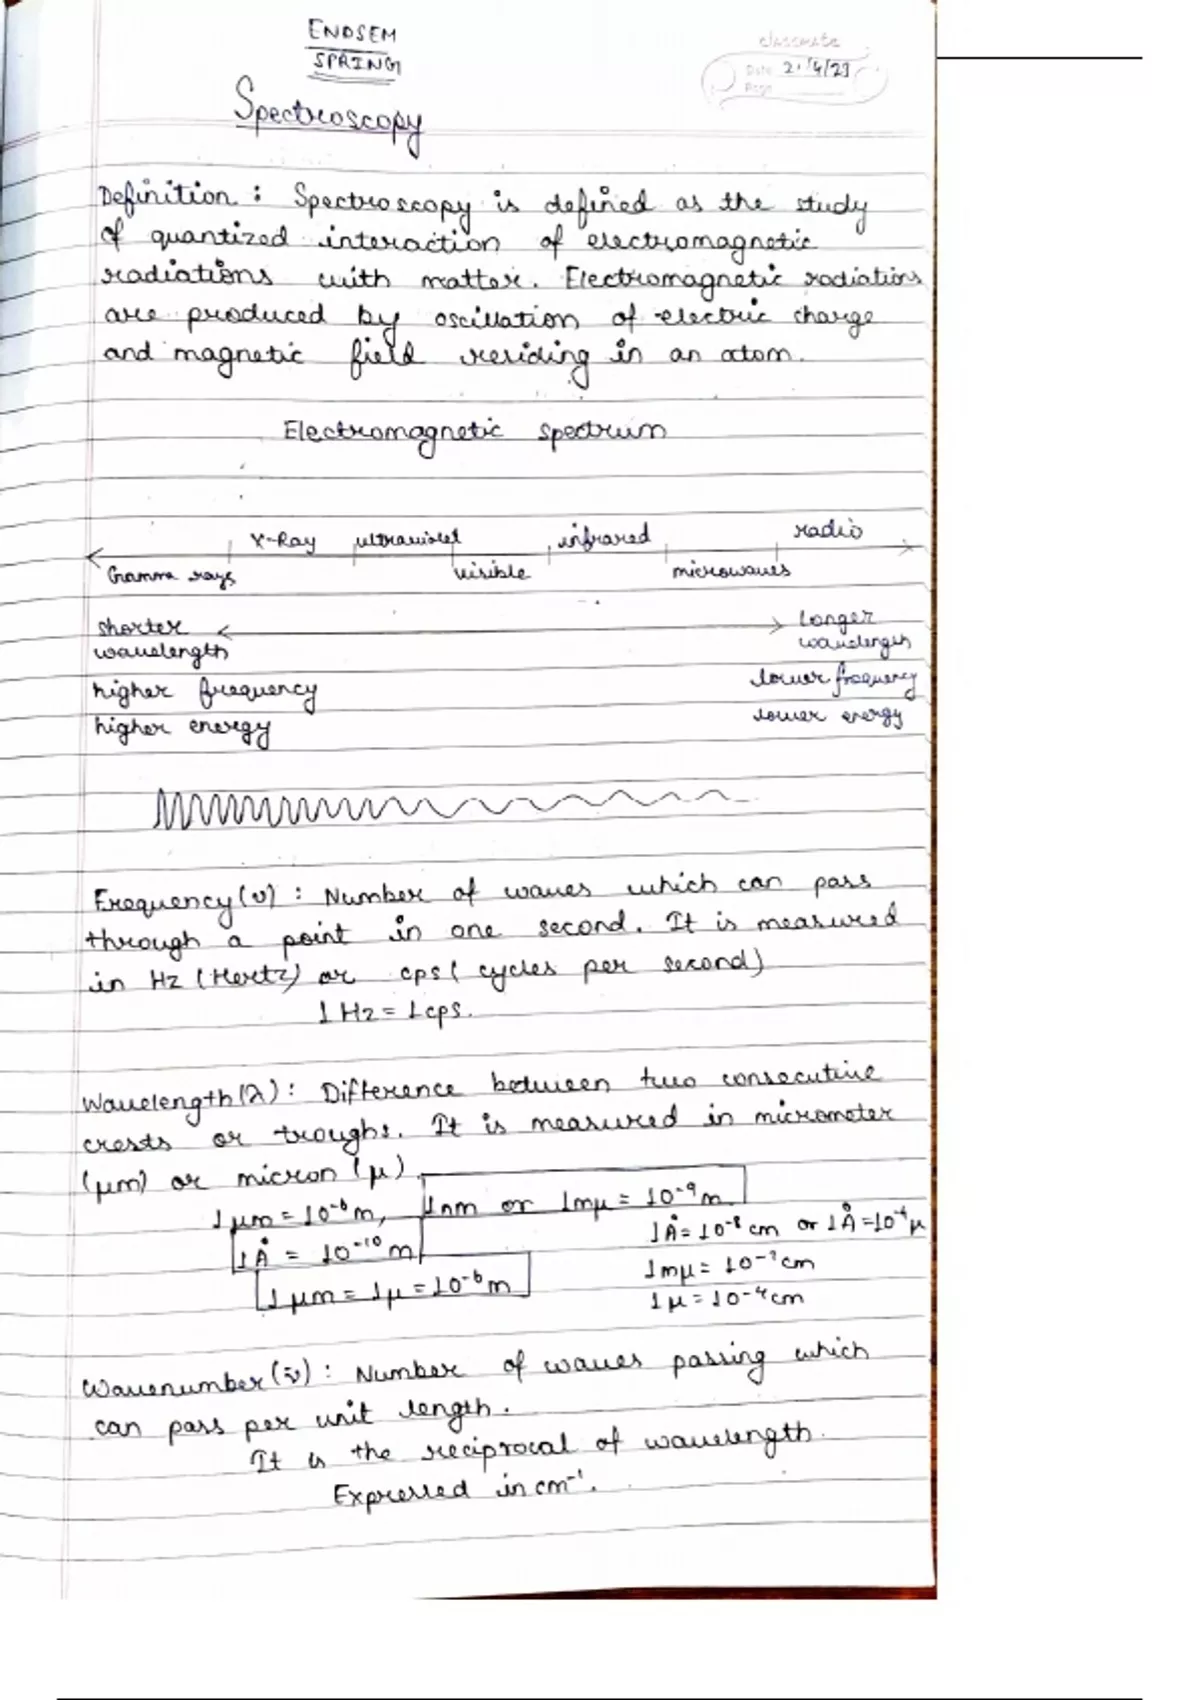 ENDSEM
SPRING
classmate
Date 21/4/23
Page
Spectroscopy
Definition : Spectroscopy is defined as the study
of quantized interaction of electromagnetic
radiations with matter. Electromagnetic radiations
are produced by oscillation of electric charge
and magnetic field residing in an atom.
Electromagnetic spectrum
X-Ray ultraviolet infrared radio
Gamma rays visible microwaves
shorter longer
wavelength wavelength
higher frequency lower frequency
higher energy lower energy
Frequency (ν) : Number of waves which can pass
through a point in one second. It is measured
in Hz (Hertz) or cps ( cycles per second)
1 Hz = 1 cps.
Wavelength (λ) : Difference between two consecutive
crests or troughs. It is measured in micrometer
(μm) or micron (μ)
1 μm = 10⁻⁶ m, 1nm or 1mμ = 10⁻⁹ m
1 Å = 10⁻¹⁰ m 1Å = 10⁻⁸ cm or 1Å = 10⁻⁴ μ
1 μm = 1μ = 10⁻⁶ m 1mμ = 10⁻⁷ cm
1 μ = 10⁻⁴ cm
Wavenumber (ν̄) : Number of waves passing which
can pass per unit length.
It is the reciprocal of wavelength.
Expressed in cm⁻¹.